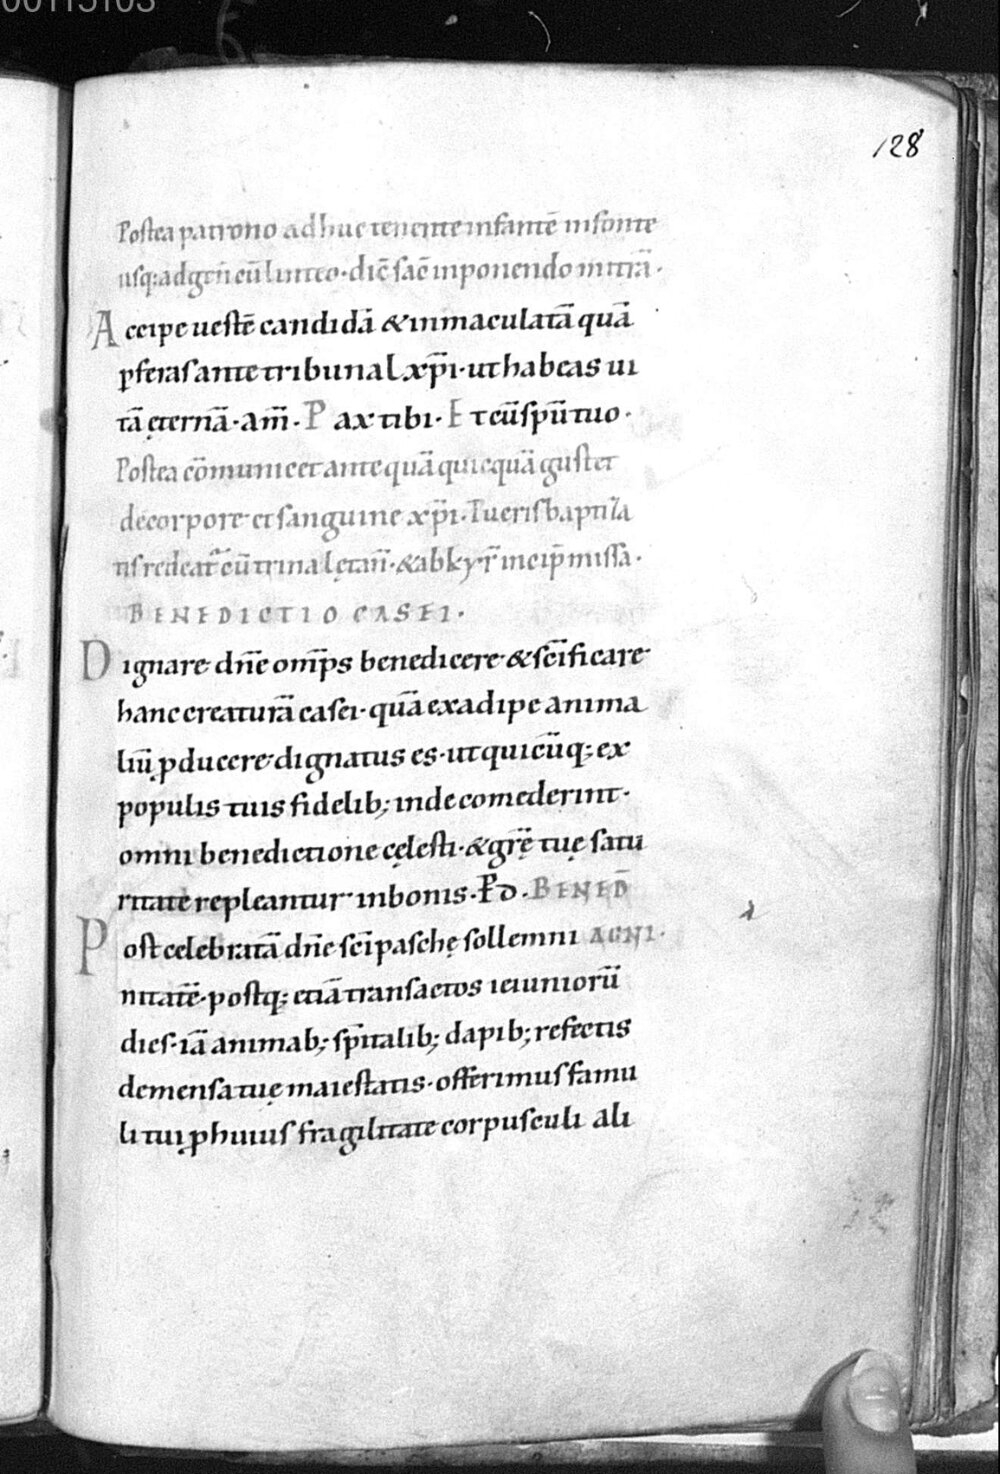 00115103
128
Postea patrono adhuc tenente infantē in fonte
usq; ad gen̄ cū linteo · dic̄ sac̄ inponendo mitrā ·
Accipe uestē candidā & inmaculatā quā
p̄feras ante tribunal xp̄i · ut habeas ui
tā ęternā · am̄ · Pax tibi · Et cū sp̄u tuo ·
Postea cōmunicet antequā quicquā gustet
de corpore et sanguine xp̄i · Fueris baptiza
tis redeat cū trina lętan̄ · & ab kyr̄ incip̄ missa ·
BENEDICTIO CASEI ·
Dignare dn̄e om̄ps benedicere & sc̄ificare
hanc creaturā casei · quā ex adipe anima
liū ꝓducere dignatus es · ut quicūq; ex
populis tuis fidelib; inde comederint ·
omni benedictione cęlesti · & gr̄ę tuę satu
ritate repleantur in bonis · P̄ d · BENED̄
Post celebratā dn̄e sc̄i paschę sollemni AGNI ·
nitatē · postq; etiā transactos ieiuniorū
dies · iā animab; sp̄italib; dapib; refectis
de mensa tuę maiestatis · offerimus famu
li tui ꝓ huius fragilitate corpusculi ali